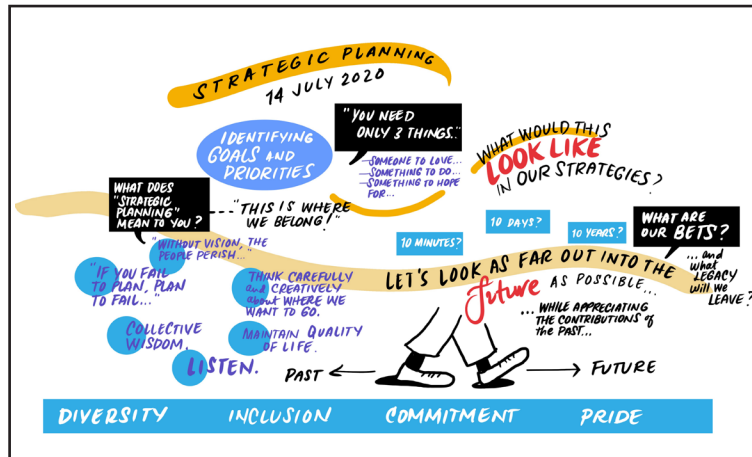 STRATEGIC PLANNING
14 JULY 2020
IDENTIFYING
GOALS AND
PRIORITIES
"YOU NEED
ONLY 3 THINGS.."
—SOMEONE TO LOVE...
—SOMETHING TO DO...
—SOMETHING TO HOPE
FOR...
WHAT WOULD THIS
LOOK LIKE
IN OUR STRATEGIES?
WHAT DOES
"STRATEGIC
PLANNING"
MEAN TO YOU?
"THIS IS WHERE
WE BELONG!"
"WITHOUT VISION, THE
PEOPLE PERISH..."
"IF YOU FAIL
TO PLAN, PLAN
TO FAIL..."
THINK CAREFULLY
and CREATIVELY
about WHERE WE
WANT TO GO.
COLLECTIVE
WISDOM.
MAINTAIN QUALITY
OF LIFE.
LISTEN.
10 MINUTES?
10 DAYS?
10 YEARS?
WHAT ARE
OUR BETS?
...and
what
LEGACY
will we
LEAVE?
LET'S LOOK AS FAR OUT INTO THE
future AS POSSIBLE...
...WHILE APPRECIATING
THE CONTRIBUTIONS of
THE PAST...
PAST
FUTURE
DIVERSITY
INCLUSION
COMMITMENT
PRIDE